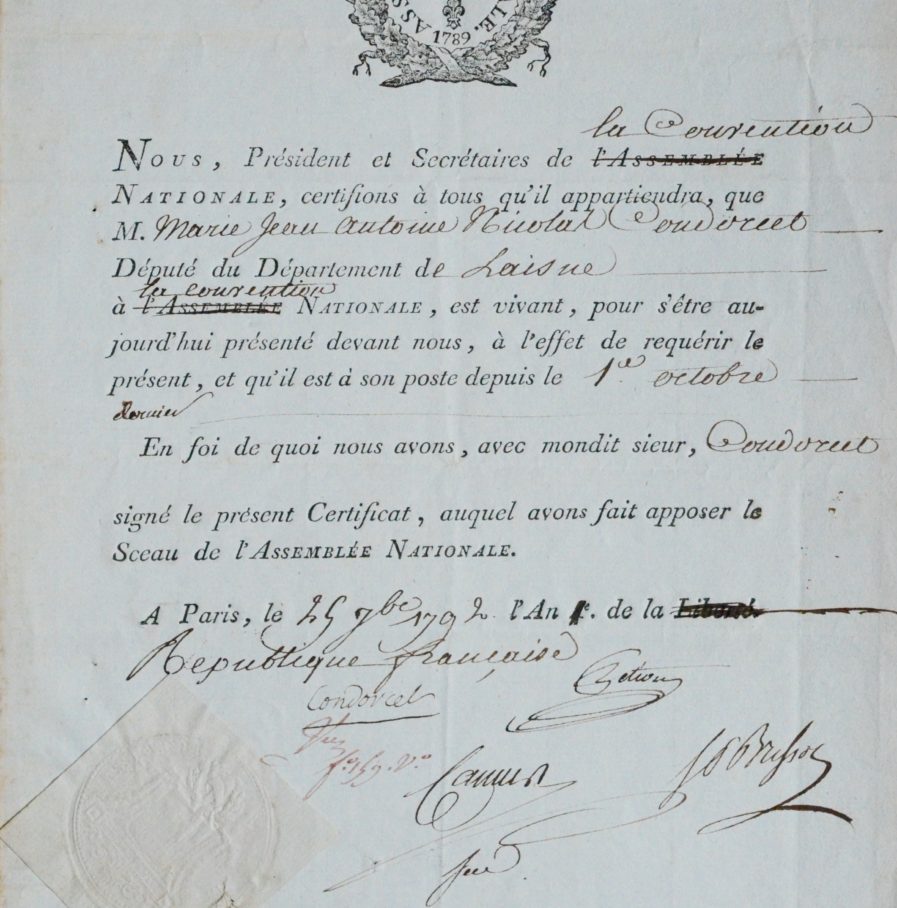 ASS ALE.
1789
la Convention
Nous, Président et Secrétaires de l'Assemblée
Nationale, certifions à tous qu'il appartiendra, que
M. Marie Jean Antoine Nicolas Condorcet
Député du Département de Laisne
la convention
à l'Assemblée Nationale, est vivant, pour s'être au-
jourd'hui présenté devant nous, à l'effet de requérir le
présent, et qu'il est à son poste depuis le 1er octobre
dernier
En foi de quoi nous avons, avec mondit sieur, Condorcet
signé le présent Certificat, auquel avons fait apposer le
Sceau de l'Assemblée Nationale.
A Paris, le 25 7bre 1792 l'An 1er. de la Liberté.
République française
Condorcet Petion
Vu
f.º 159. Vº
Camus JP Brissot